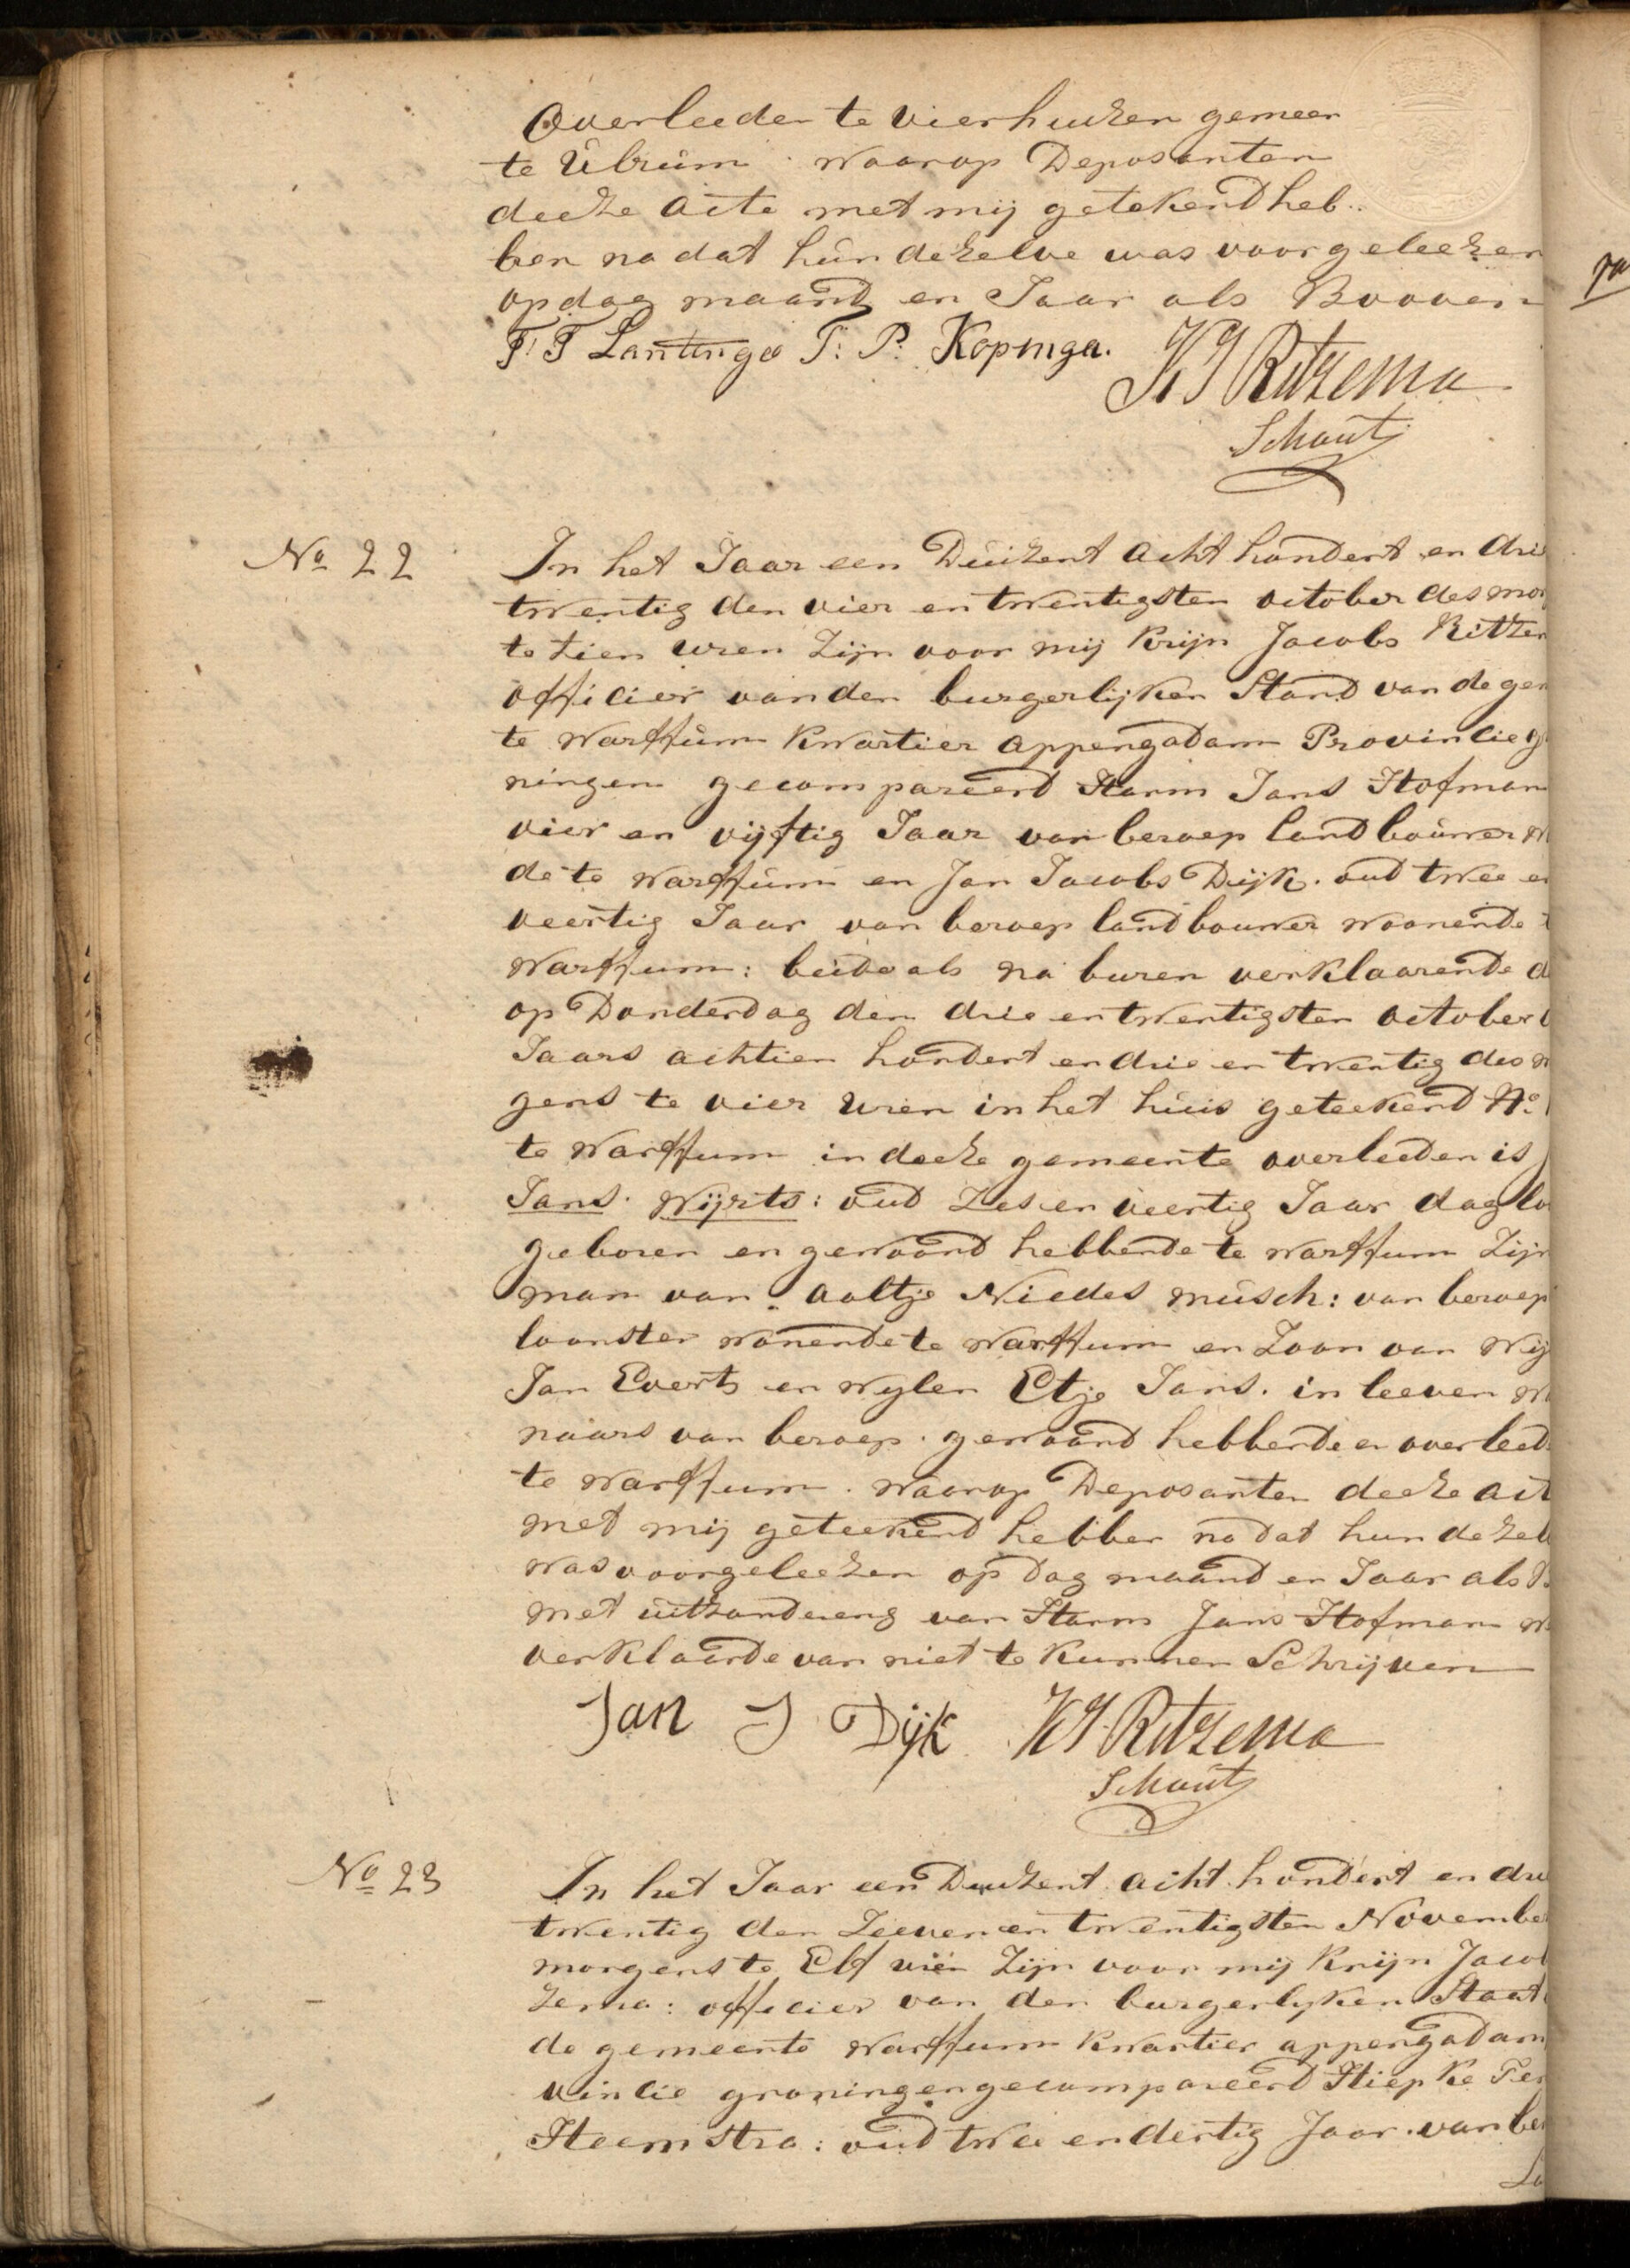 Overleeden te vierhuizen gemeen
te Ulrum. waarop Deposanten
deeze acte met mij getekend heb..
ben na dat hun dezelve was voorgeleezen
op dag maand en Jaar als Booven
T. P. Kopinga.
K J Ritzema
Schout
No 22
In het Jaar een Duizent acht hondert en drie
twentig den vier en twentigsten october des mor
te tien uren zijn voor mij Krijn Jacobs Ritzem
officier van den burgerlijken Stand van de gem
te warffum Kwartier appengadam Provincie G
ningen gecompareerd Harm Jans Hofman
vier en vijftig Jaar van beroep landbouwer w
de te warffum en Jan Jacobs Dijk. oud twee en
veertig Jaar van beroep landbouwer woonende t
Warffum: beide als na buren verklaarende d
op Donderdag den drie en twentigsten october
Jaars achtien hondert en drie en twentig des m
gens te vier uren in het huis geteekend No
te Warffum in deeze gemeente overleeden is
Jans. Wijrts: oud Zes en veertig Jaar dag lo
geboren en gewoond hebbende te warffum Zijn
man van Aaltje Niedes musch: van beroep
loonster wonende te Warffum en Zoon van Wij
Jan Everts en wylen Etje Jans. in leeven
naars van beroep. gewoond hebbende en overleed
te warffum. waarop Deposanten deeze act
met mij geteekend hebben na dat hun dezel
was voorgeleezen op Dag maand en Jaar als
met uitzondereng van Harm Jans Hofman w
verklaarde van niet te Kunnen Schrijven
Jan J Dijk K J Ritzema
Schout
No 23
In het Jaar een Duizent acht hondert en drie
twentig den Zeeven en twentigsten November
morgens te Elf uren Zijn voor mij Krijn Jacob
zema: officier van den burgerlyken Staat
de gemeente Warffum Kwartier appengadam
vincie groningen gecompareerd Hiepke
Heemstra: oud twee en dertig Jaar. van be